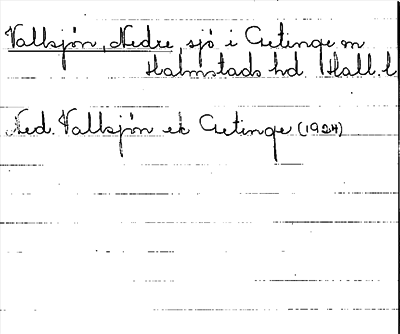 Vallsjön, Nedre, sjö i Getinge sn
Halmstads hd. Hall. l.
Ned. Vallsjön ek Getinge (1924)